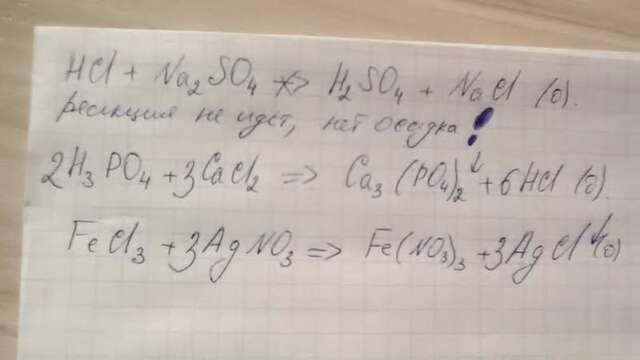 HCl + Na₂SO₄ ≠> H₂SO₄ + NaCl (о).
реакция не идет, нет осадка!
2H₃PO₄ + 3CaCl₂ => Ca₃(PO₄)₂↓ + 6HCl (о).
FeCl₃ + 3AgNO₃ => Fe(NO₃)₃ + 3AgCl↓ (о)